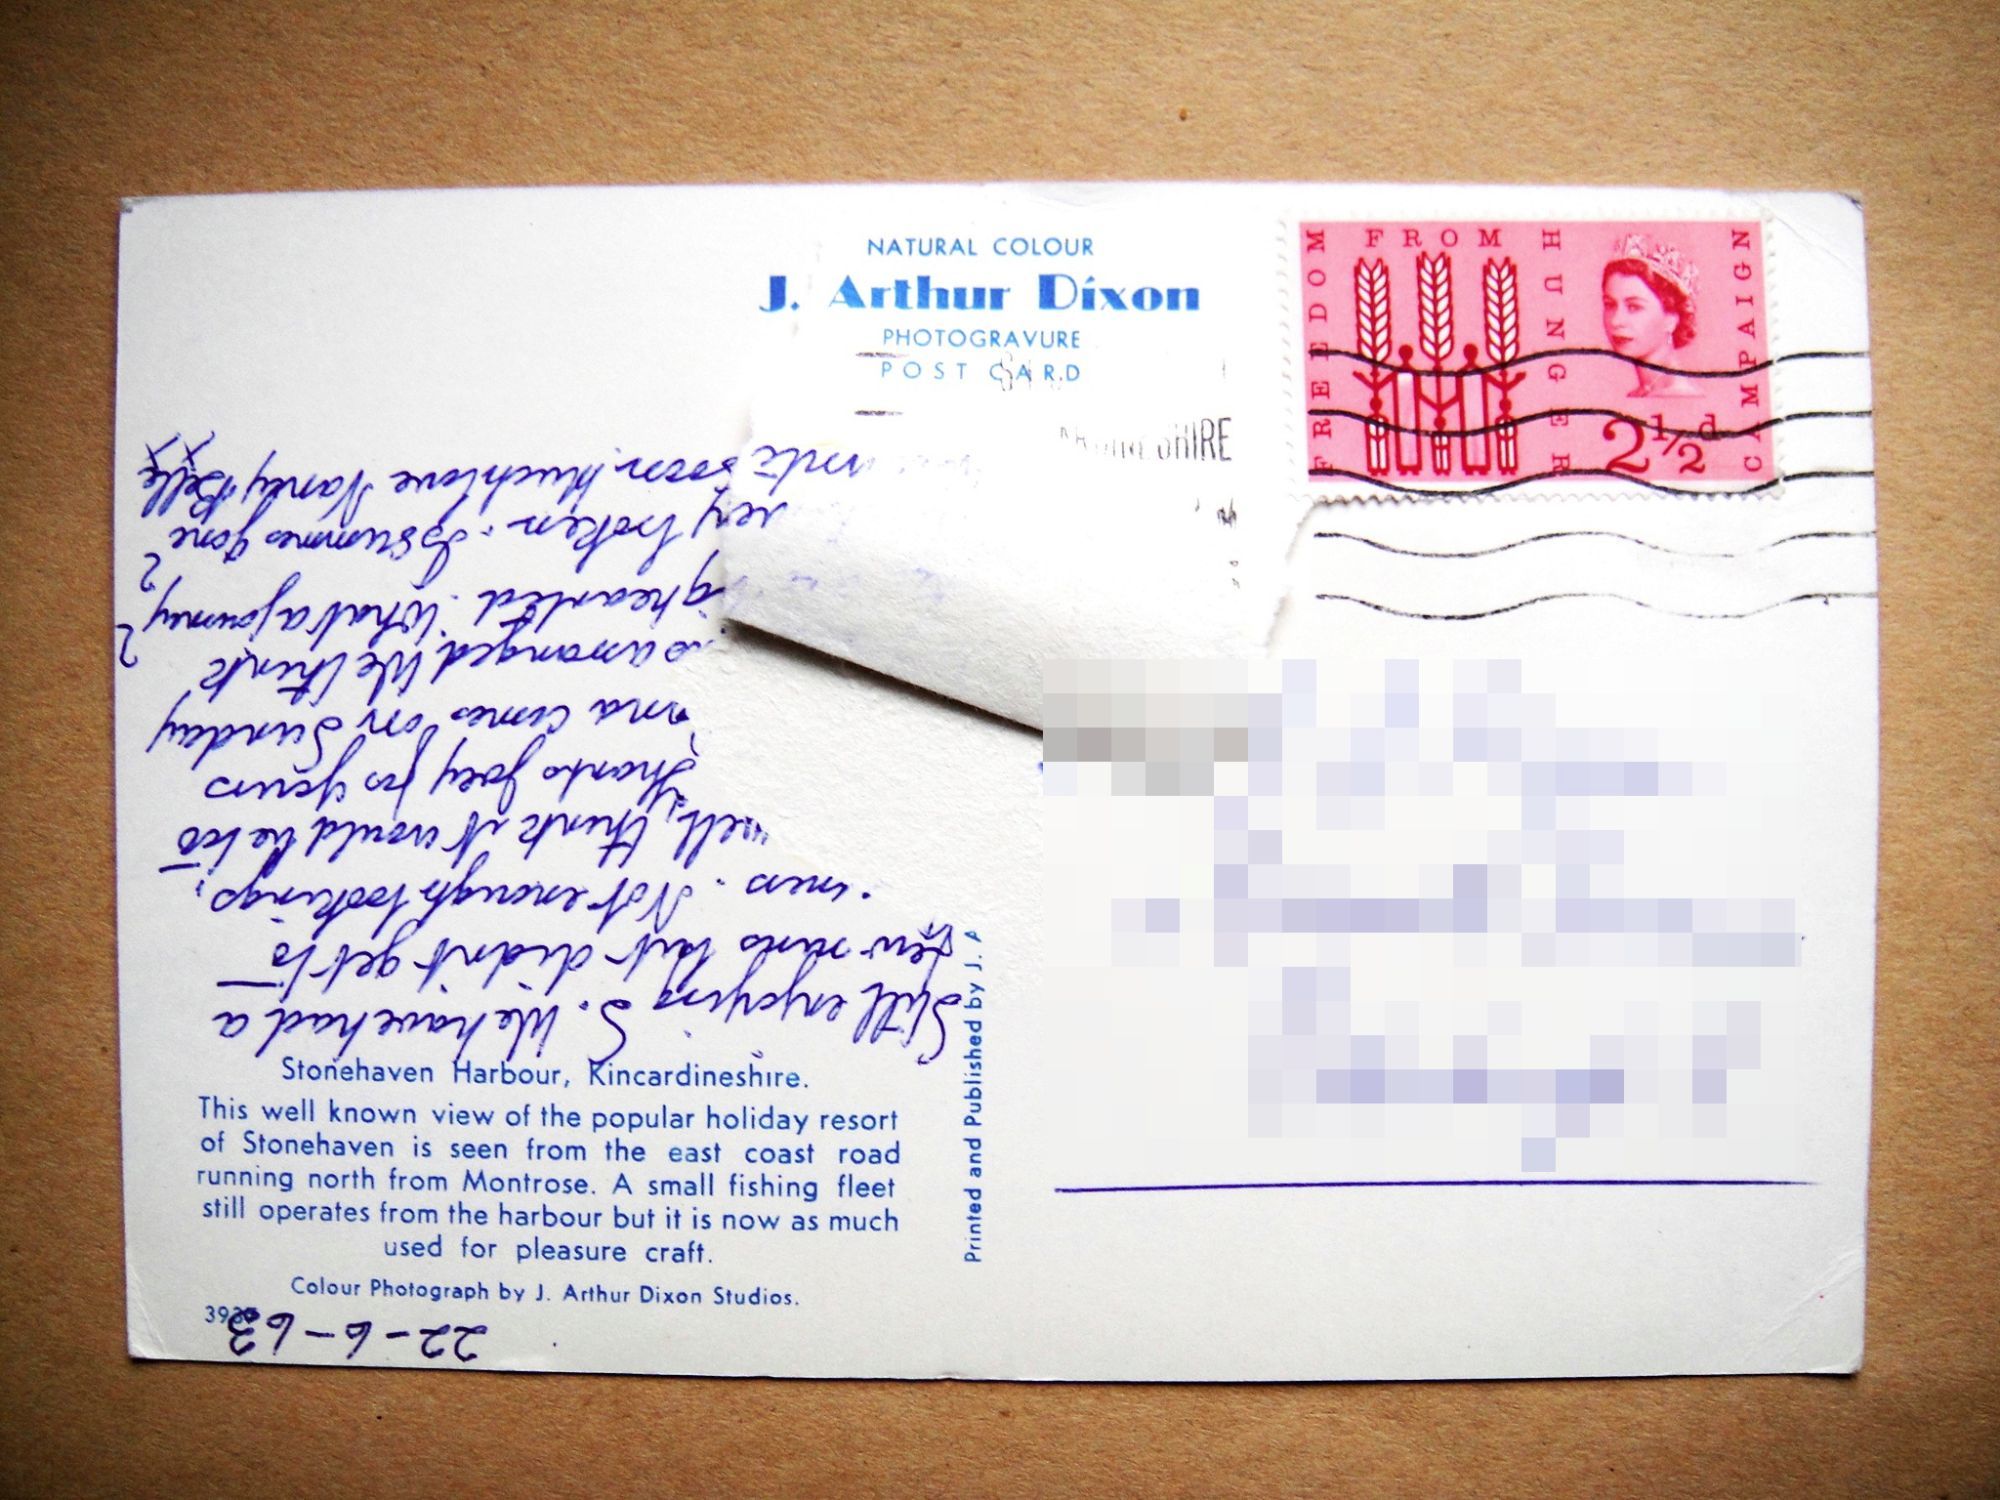 NATURAL COLOUR
J. Arthur Dixon
PHOTOGRAVURE
POST CARD
FREEDOM FROM HUNGER CAMPAIGN
2½d
SHIRE
22-6-63
Still enjoying S. We have had a
few runs but didn't get to
. Not enough bookings,
well, think it would be too
Thanks Joey for yours
comes on Sunday
arranged. We think
hearted. What a journey
broken. Is summer gone?
write soon. Much love Nancy Belle
Stonehaven Harbour, Kincardineshire.
This well known view of the popular holiday resort
of Stonehaven is seen from the east coast road
running north from Montrose. A small fishing fleet
still operates from the harbour but it is now as much
used for pleasure craft.
Colour Photograph by J. Arthur Dixon Studios.
Printed and Published by J. A